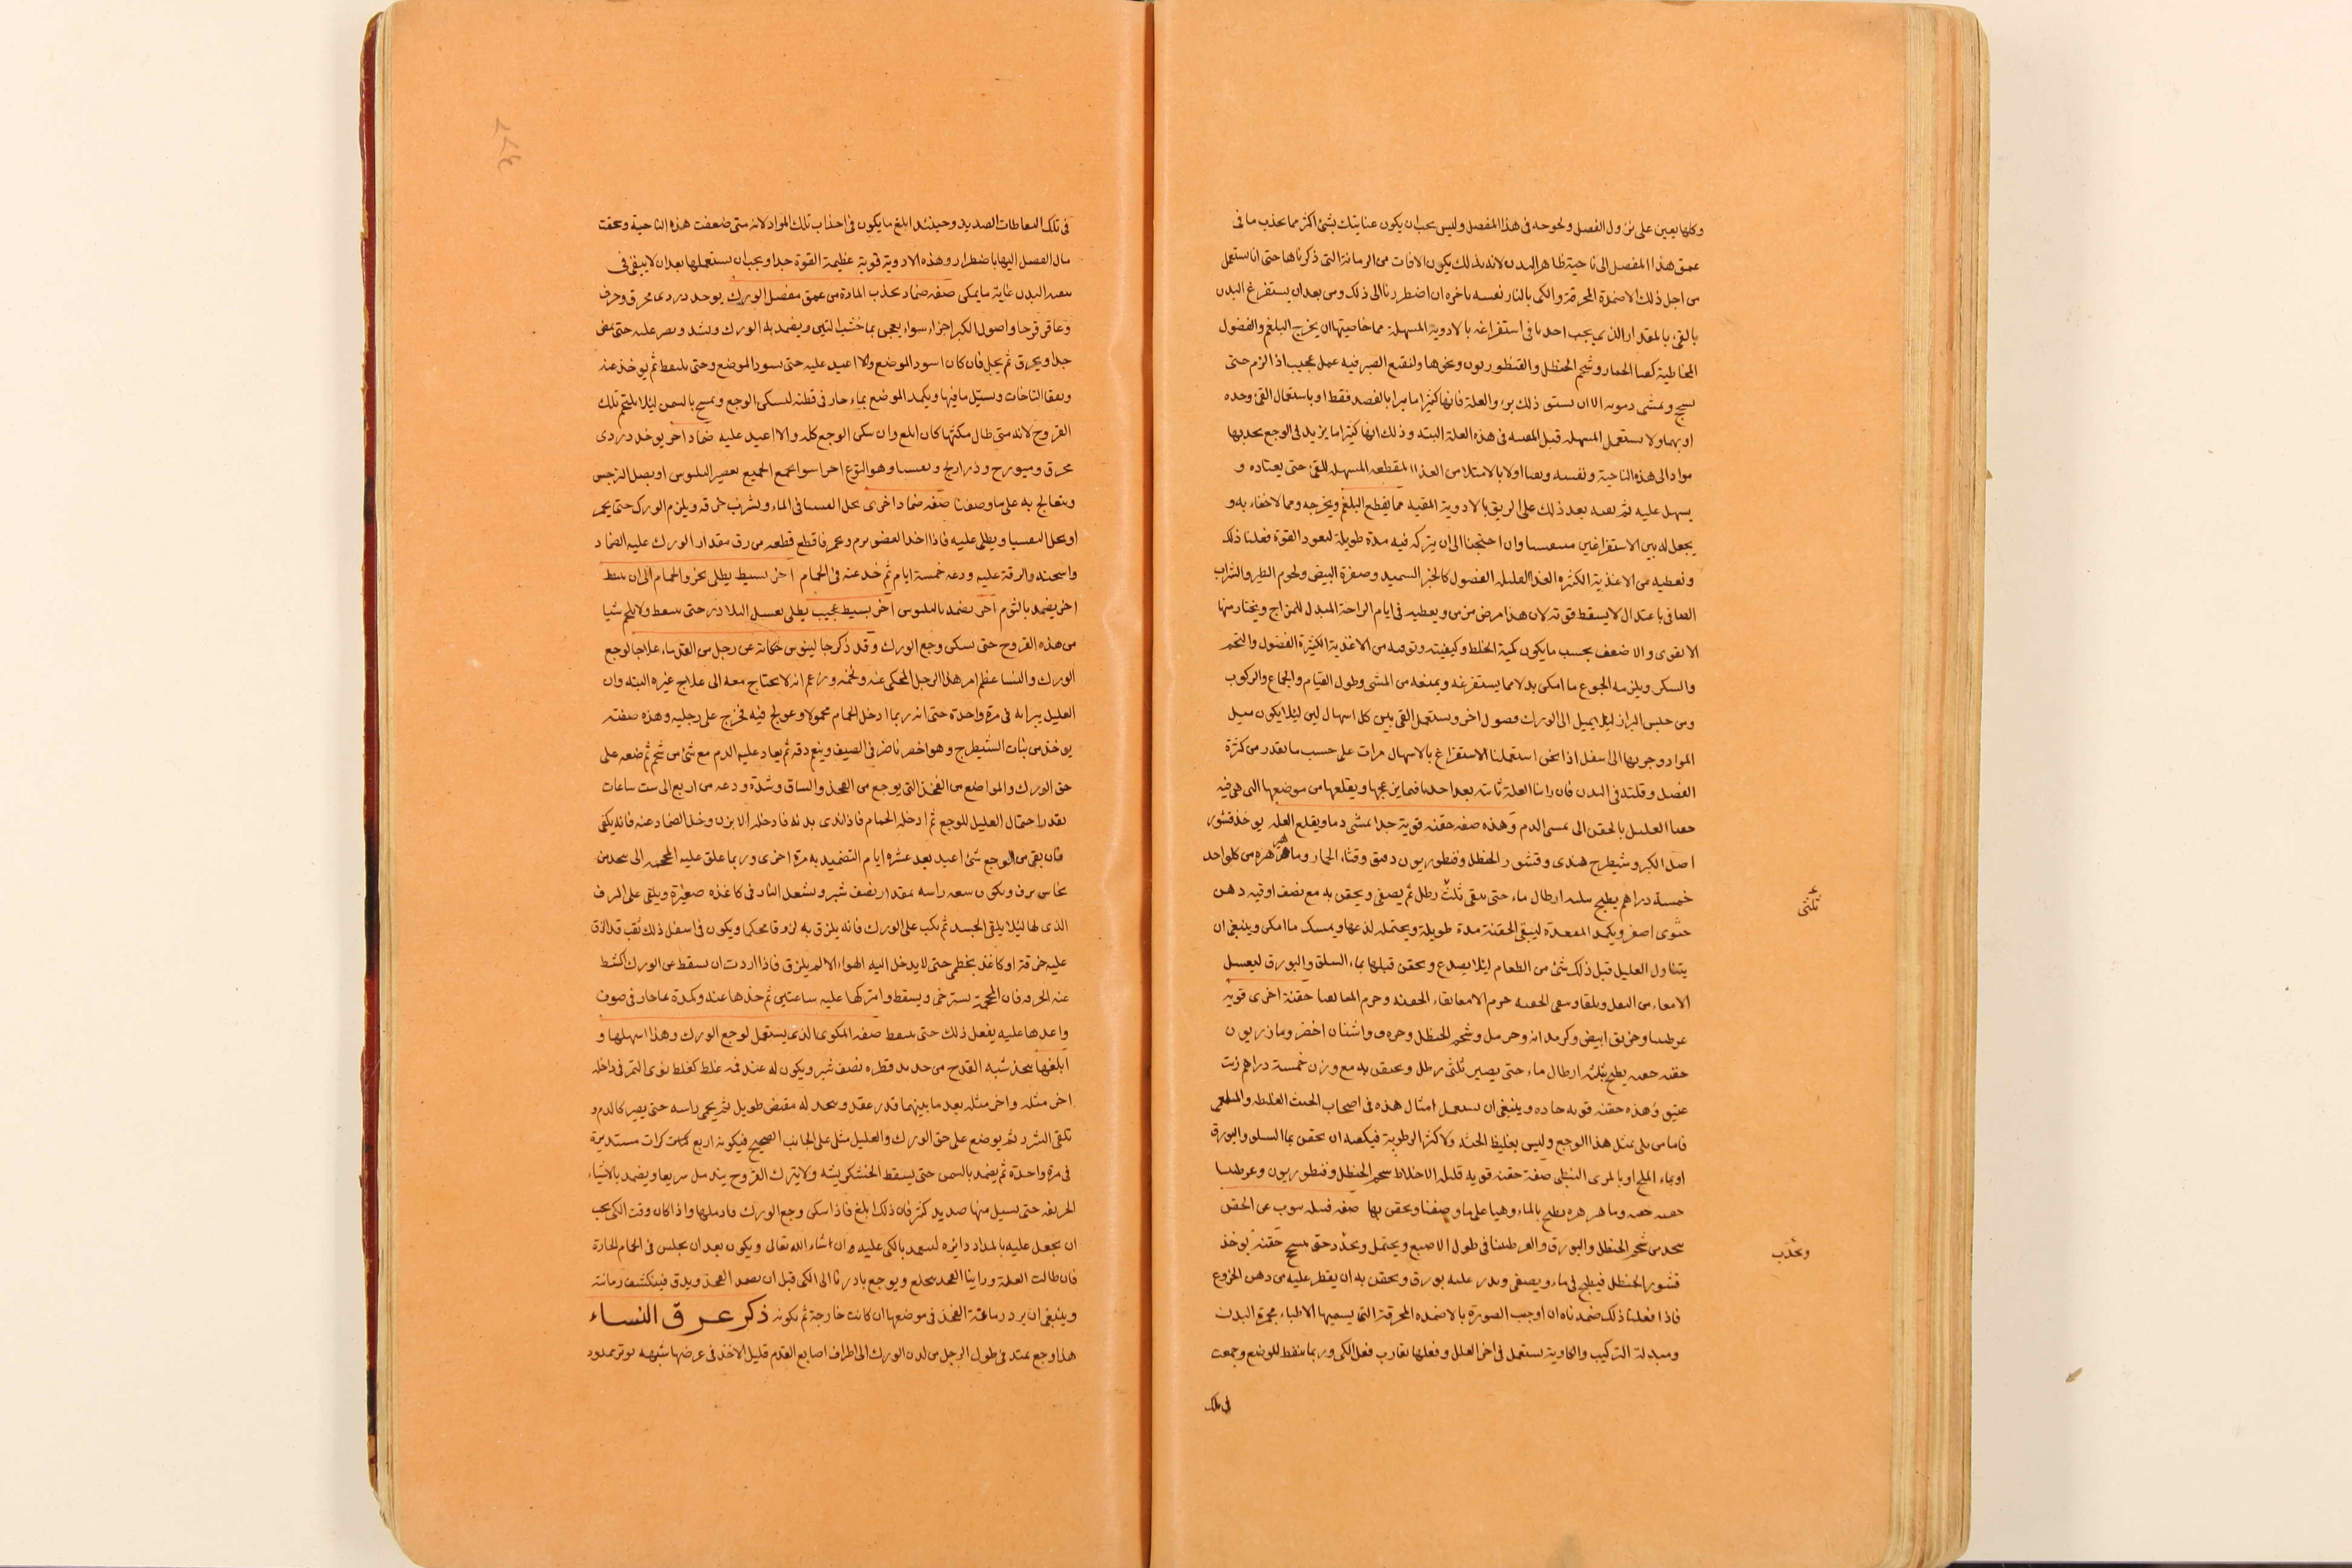 وكلها يعين على نزول الفصل ولحوحه فى هذا المفصل وليس يجب ان يكون عنايتك بشئ اكثر مما يحذب ما فى
عمق هذا المفصل الى ناحية ظاهر البدن لانه بذلك يكون الافات من الزمانة التى ذكرناها حتى انا نستعمل
من اجل ذلك الاضمدة المحرقة والكى بالنار نفسه باخره ان اضطررنا الى ذلك ومن بعد ان يستفرغ البدن
بالقئ بالمقدار الذى يجب احد نا فى استفراغه بالادوية المسهلة مما خاصيتها ان يخرج البلغم والفضول
المخاطية كعصا الحمار وشحم الحنظل والقنطوريون ونحوها ولنقيع الصبر فيه عمل عجيب اذا لزم حتى
يسحج ويمشى دمويه الا ان يستق ذلك برؤ والعلة فانها كثيرا ما يبرا بالفصد فقط او باستعمال القئ وحده
او بهما ولا يستعمل المسهله قبل فى هذه العلة البته وذلك انها كثيرا ما يزيد فى الوجع بحدبها
مواد الى هذه الناحية ونفسه اولا بالامتلا من الغذا المقطعه المسهله للقئ حتى يعتاده و
يسهل عليه ثم بعد ذلك على الريق بالادوية المقيه مما يقطع البلغم ويخرجه ومما لاخفاء به و
يجعل له بين الاستفراغين وان احتجنا الى ان يتركه فيه مدة طويلة ليعود القوة فعلنا ذلك
ونعطيه من الاغذية الكثره الغذا القليله الفضول كالخبز السميد وصفرة البيض ولحوم الطير والشراب
الصافى باعتدال لا يسقط قوته لان هذا مرض مزمن ويعطيه فى ايام الراحة المبدل للمزاج ويختار منها
الاقوى والاضعف بحسب ما يكون كمية الخلط وكيفيته من الاغذية الكثيرة الفضول والتخم
والسكر ويلزمه الجوع ما امكن بدلا مما يستفرغه ويمنعه من المشى وطول القيام والجماع والركوب
ومن حبس البراز ليلا يميل الى الورك فصول اخر ويستعمل القى بين كل اسهال لين ليلا يكون ميل
المواد وجريها الى اسفل اذا نحن استعملنا الاستفراغ بالاسهال مرات على حسب ما نقدر من كثرة
الفضل وقلته فى البدن فان راينا العلة ثابته بعد احدنا فيما يزعجها ويقلعها من موضعها التى هى فيه
حقنا العليل بالحقن الى تمشى الدم وهذه صفه حقنه قوية جدا تمشى دما ويقلع العله يوخذ قشور
اصل الكبر وشيطرج هندى وقشور الحنظل وقنطوريون دقيق وقثاء الحمار وماهى زهره من كل واحد
خمسة دراهم يطبخ بثلثه ارطال ماء حتى يبقى ثلث رطل ثم يصفى ويحقن به مع نصف اوقيه دهن
ثلثى
ويكمد المقعدة ليبقى الحقنة مدة طويلة ويحتمله لذعها ويمسك ما امكن وينبغى ان
يتناول العليل قبل ذلك شئ من الطعام ليلا يصدع ويحقن قبلها بماء السلق والبورق ليغسل
الامعاء من وحرم المعا ايضا حقنة اخرى قوية
عرطنيثا وخربق ابيض وكرمدانه وحرمل وشحم الحنظل وحرف واشنان اخضر ومازريون
حفنه حفنه يطبخ بثلثه ارطال ماء حتى يصير ثلثى رطل ويحقن به مع وزن خمسة دراهم زيت
عتيق وهذه حقنه قويه حاده وينبغى ان يستعمل امثال هذه فى اصحاب الجثث الغليظه والبلغمى
فاما من بلى بمثل هذا الوجع وليس بغليظ الجثه ولا كثير الرطوبة فيكفيه ان يحقن بماء السلق والبورق
او بماء الملح او بالمرى النبطى صفة حقنه قويه قليله الاخلاط شحم الحنظل وقنطوريون وعرطنيثا
حفنه حفنه وماهى زهره يطبخ بالماء وهيا على ما وصفنا ويحقن بها صفه فتيله ينوب عن الحقن
يتخذ من شحم الحنظل والبورق والعرطنيثا فى طول الاصبع ويحتمل ويحدد حتى يسحج حقنه يوخذ
ويحذب
قشور الحنظل فيطبخ فى ماء ويصفى ويذر عليه بورق ويحقن به ان يقطر عليه من دهن الخروع
فاذا فعلنا ذلك ضمدناه ان اوجب الصورة بالاضمده المحرقة التى يسميها الاطباء محمرة البدن
ومبدلة التركيب والكاوية يستعمل فى اخر العلل وفعلها يقارب فعل الكى وربما ينفط الموضع وجمعت
فى تلك
فى تلك النفاطات الصديد وحينئذ ابلغ ما يكون فى اجذاب تلك المواد لانه متى ضعفت هذه الناحية وسخنت
مال الفصل اليها باضطرار وهذه الادوية قوية عظيمة القوة جدا ويجب ان يستعملها بعد ان لا يبقى فى
البدن غاية ما يمكن صفه ضماد يحذب المادة من عمق مفصل الورك يوخذ دردى محرق وحرف
وعاقرقرحا واصول الكبر اجزاء سواء يعجن بماء خشب التين ويضمد به الورك ويشد ويصبر عليه حتى يمض
جدا ويحرق ثم يحل فان كان اسود الموضع والا اعيد عليه حتى يسود الموضع وحتى يتنفط ثم يوخذ عنه
ويفقا النفاخات ويسيل ما فيها ويكمد الموضع بماء حار فى قطنه ليسكن الوجع ويمسح بالسمن ليلا يلتحم تلك
القروح لانه متى طال مكثها كان ابلغ وان سكن الوجع كله والا اعيد عليه ضماد اخر يوخذ دردى
محرق وميويزج وذراريح وتفسيا وهو اليتوع اجزا سوا يجمع الجميع بعصير البلبوس او بصل النرجس
ويعالج به على ما وصفنا صفه ضماد اخرى يحل التفسيا فى الماء ويشرب خرقه ويلزم الورك حتى يحمر
او يحل التفسيا ويطلى عليه فاذا اخذ العضو يرم ويحمر فاقطع قطعه من رق مقدار الورك عليه الضماد
واسحنه والزقة عليه ودعه خمسة ايام ثم خذ عنه فى الحمام اخر بسيط يطلى بخرو الحمام الى ان يتنفط
اخر يضمد بالثوم اخر يضمد بالبلبوس اخر بسيط عجيب يطلى بعسل البلادر حتى يتنفط ولا يلحم شيا
من هذه القروح حتى يسكن وجع الورك وقد ذكر جالينوس حكاية عن رجل من القدماء علاجا لوجع
الورك والنسا عظم امر هذا الرجل المحكى عنه وفخمه وزعم انه لا يحتاج معه الى علاج غيره البته وان
العليل يبرا به فى مرة واحدة حتى انه ربما ادخل الحمام محمولا وعولج فيه فخرج على رجليه وهذه صفته
يوخذ من نبات الشيطرج وهو اخضر ناضر فى الصيف وينعم دقه ثم يعاد عليه الدم مع شئ من شحم ثم ضعه على
حق الورك والمواضع من الفخذ التى يوجع من الفخذ والساق وشدة ودعه من اربع الى ست ساعات
بقدر احتمال العليل للوجع ثم ادخله الحمام فاذا ندى بدنه فادخله الابزن وخذ الضماد عنه فانه يكفى
فان بقى من الوجع شئ اعيد بعد عشره ايام التضميد به مرة اخرى وربما علق عليه المحجمه الى يتخذ من
نحاس برف ويكون سعه راسه بمقدار نصف شبر ويشعل النار فى كاغذه صغيرة ويلقى على الرف
الذى لها ليلا يلقى الجسد ثم يكب على الورك فانه يلزق به لزوقا محكما ويكون فى اسفل ذلك ثقب قد الزق
عليه خرقة او كاغذ بخطمى حتى لا يدخل اليه الهواء الا لم يلزق فاذا اردت ان يسقط عن الورك اكشط
عنه الخرقه فان المحجمة تسترخى ويسقط واتركها عليه ساعتين ثم خذها عنه وكمدة بماء حار فى صوف
واعدها عليه يفعل ذلك حتى يتنفط صفه المكوى الذى يستعمل لوجع الورك وهذا اسهلها و
ابلغها يتخذ شبه القدح من حديد قطره نصف شبر ويكون له عند فمه غلظ كغلظ نوى التمر فى داخله
اخر مثله واخر مثله بعد ما بينهما قدر عقد ويتخذ له مقبض طويل ثم يحمى راسه حتى يصير كالدم و
تلقى الشرر ثم يوضع على حق الورك والعليل متكى على الجانب الصحيح فيكويه اربع كرات مستديرة
فى مرة واحدة ثم يضمد بالسمن حتى يسقط الخشكريشه ولا يترك القروح يندمل سريعا ويضمد بالاشياء
الحريفه حتى يسيل منها صديد كثير فان ذلك ابلغ فاذا سكن وجع الورك فادملها واذا كان وقت الكى يجب
ان يجعل عليه بالمداد دايره ليتعمد بالكى عليه وان شاء الله تعالى ويكون بعد ان يجلس فى الحمام الحارة
فان طالت العلة وراينا الفخذ ينخلع ويوجع بادرنا الى الكى قبل ان الفخذ ويدق فينكشف زمانته
وينبغى ان يرد رمانة الفخذ فى موضعها ان كانت خارجة ثم يكويه ذكر عرق النساء
هذا وجع يمتد فى طول الرجل من لدن الورك الى اطراف اصابع القدم قليل الاخذ فى عرضها شبهه بوتر ممدود